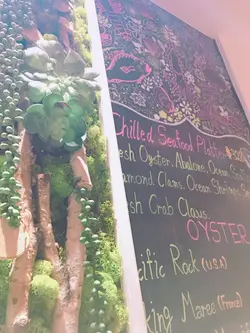 Chilled Seafood Platter
Fresh Oyster, Abalone, Ocean
Diamond Clams, Ocean Shrimps
Fresh Crab Claws
OYSTER
Pacific Rock (U.S.A)
(France)